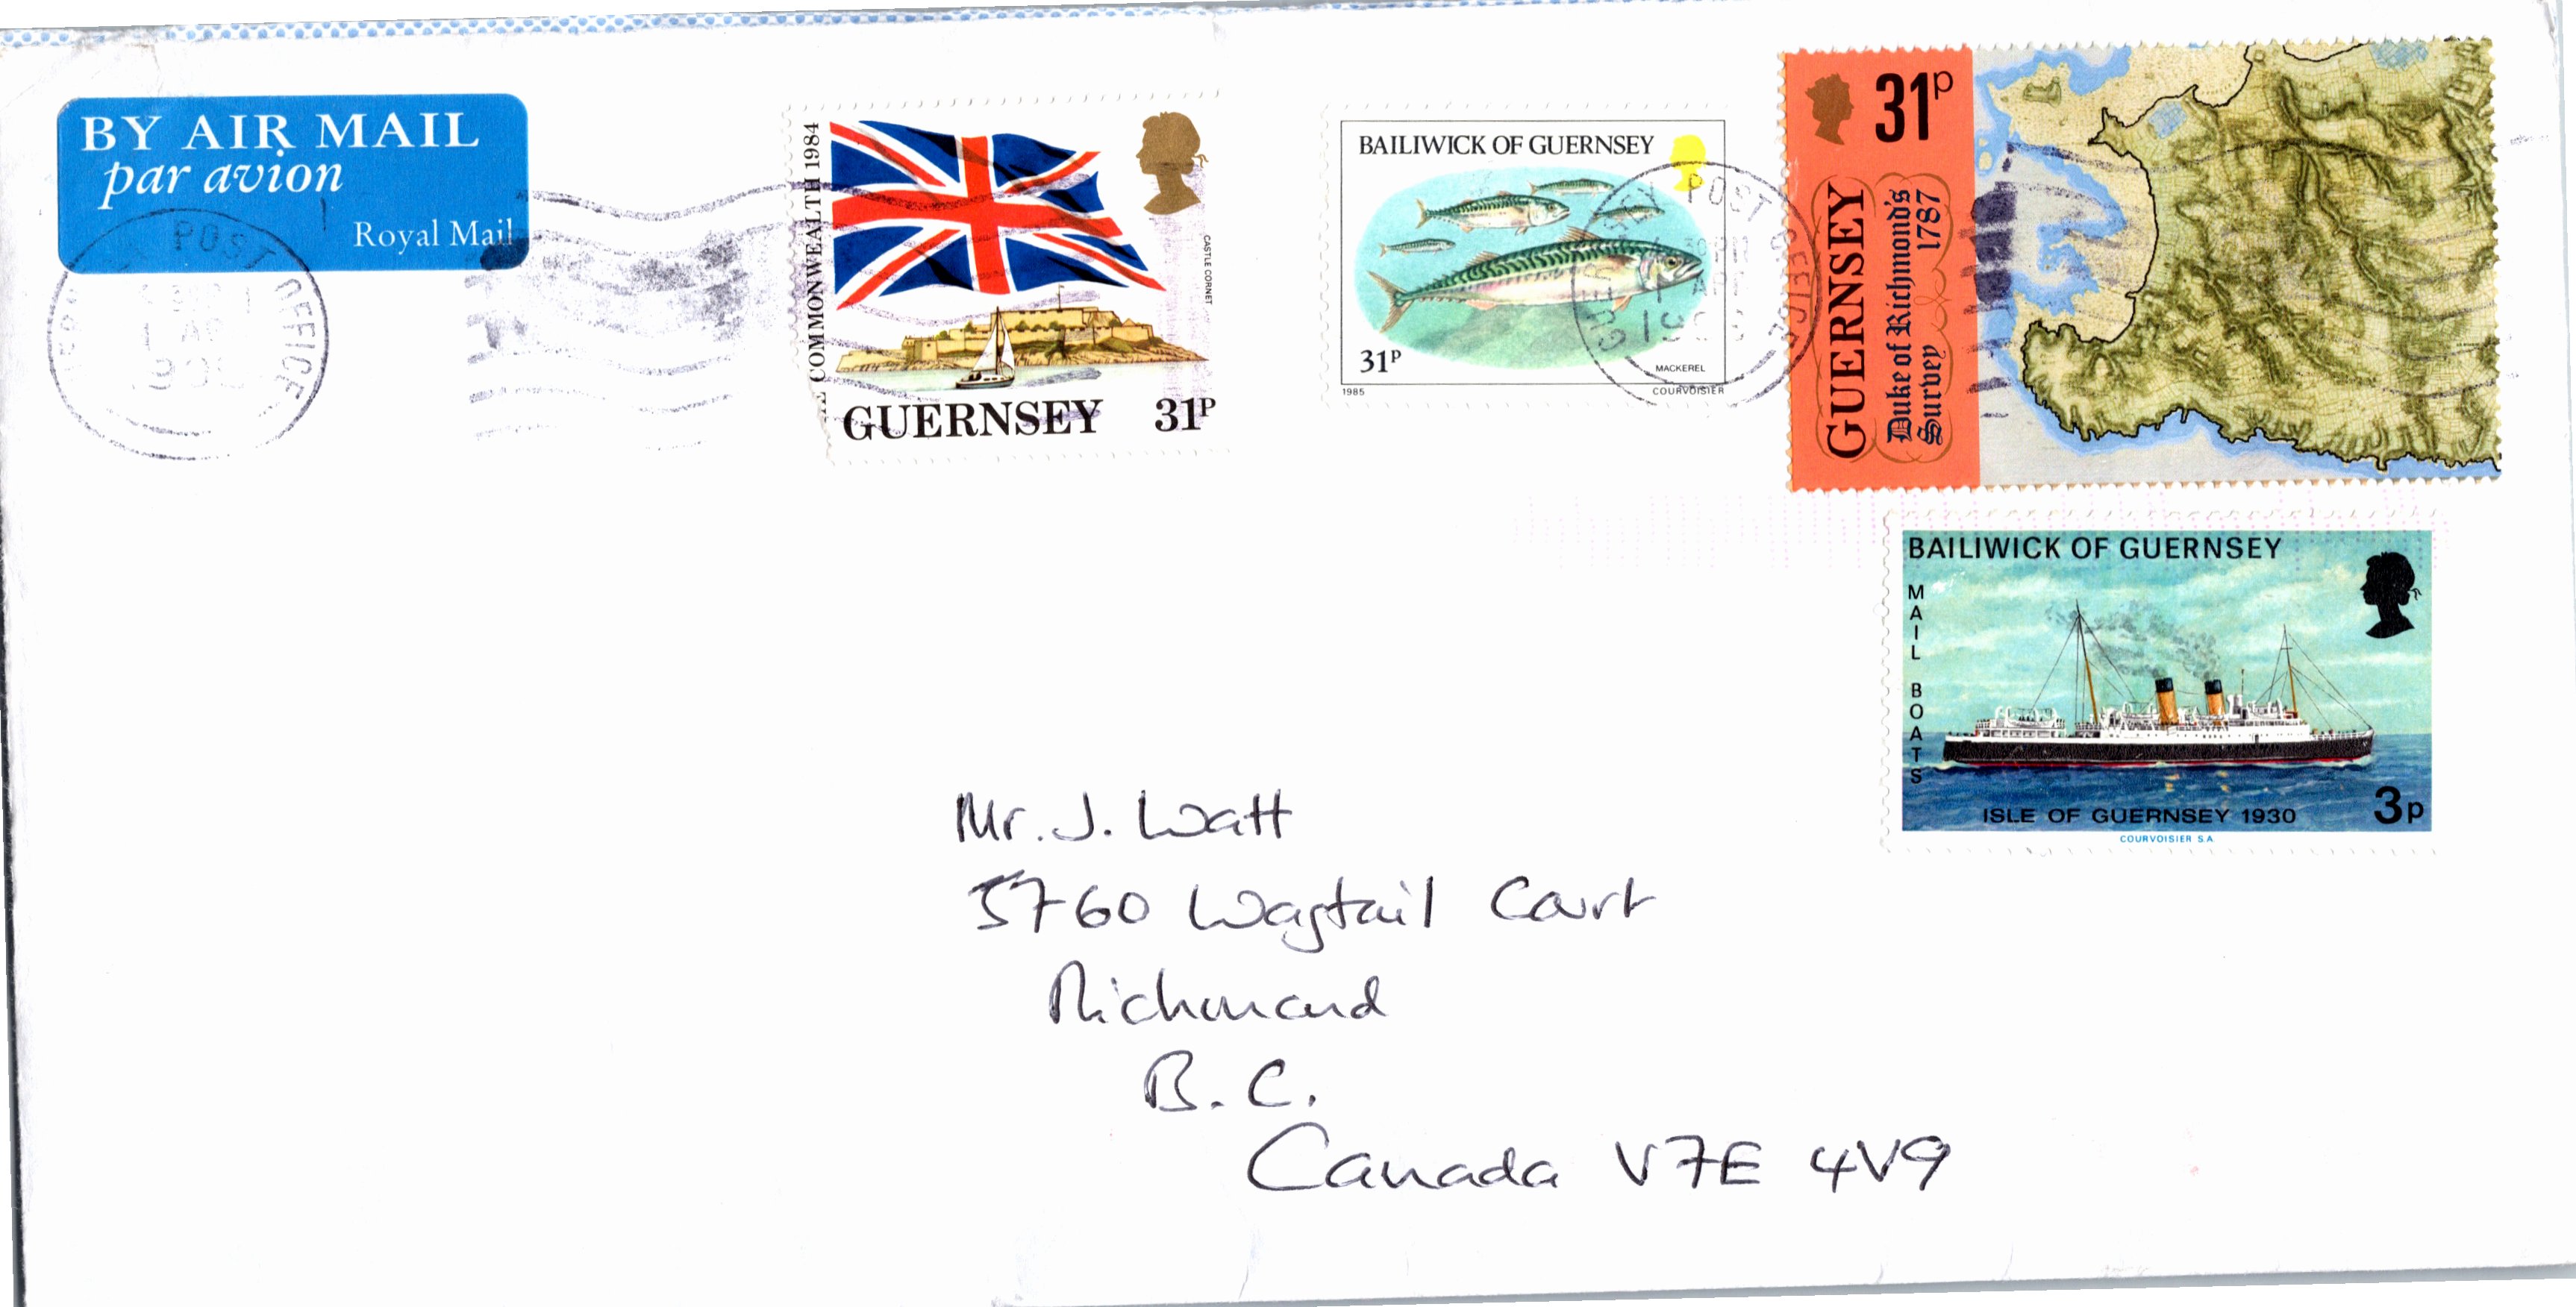 BY AIR MAIL
par avion
Royal Mail
POST OFFICE
THE COMMONWEALTH 1984
CASTLE CORNET
GUERNSEY 31P
BAILIWICK OF GUERNSEY
31P
MACKEREL
1985 COURVOISIER
POST OFFICE
31P
GUERNSEY
Duke of Richmond's
Survey 1787
BAILIWICK OF GUERNSEY
MAIL BOATS
ISLE OF GUERNSEY 1930 3p
COURVOISIER S.A
Mr. J. Watt
5760 Wagtail Court
Richmond
B.C.
Canada V7E 4V9